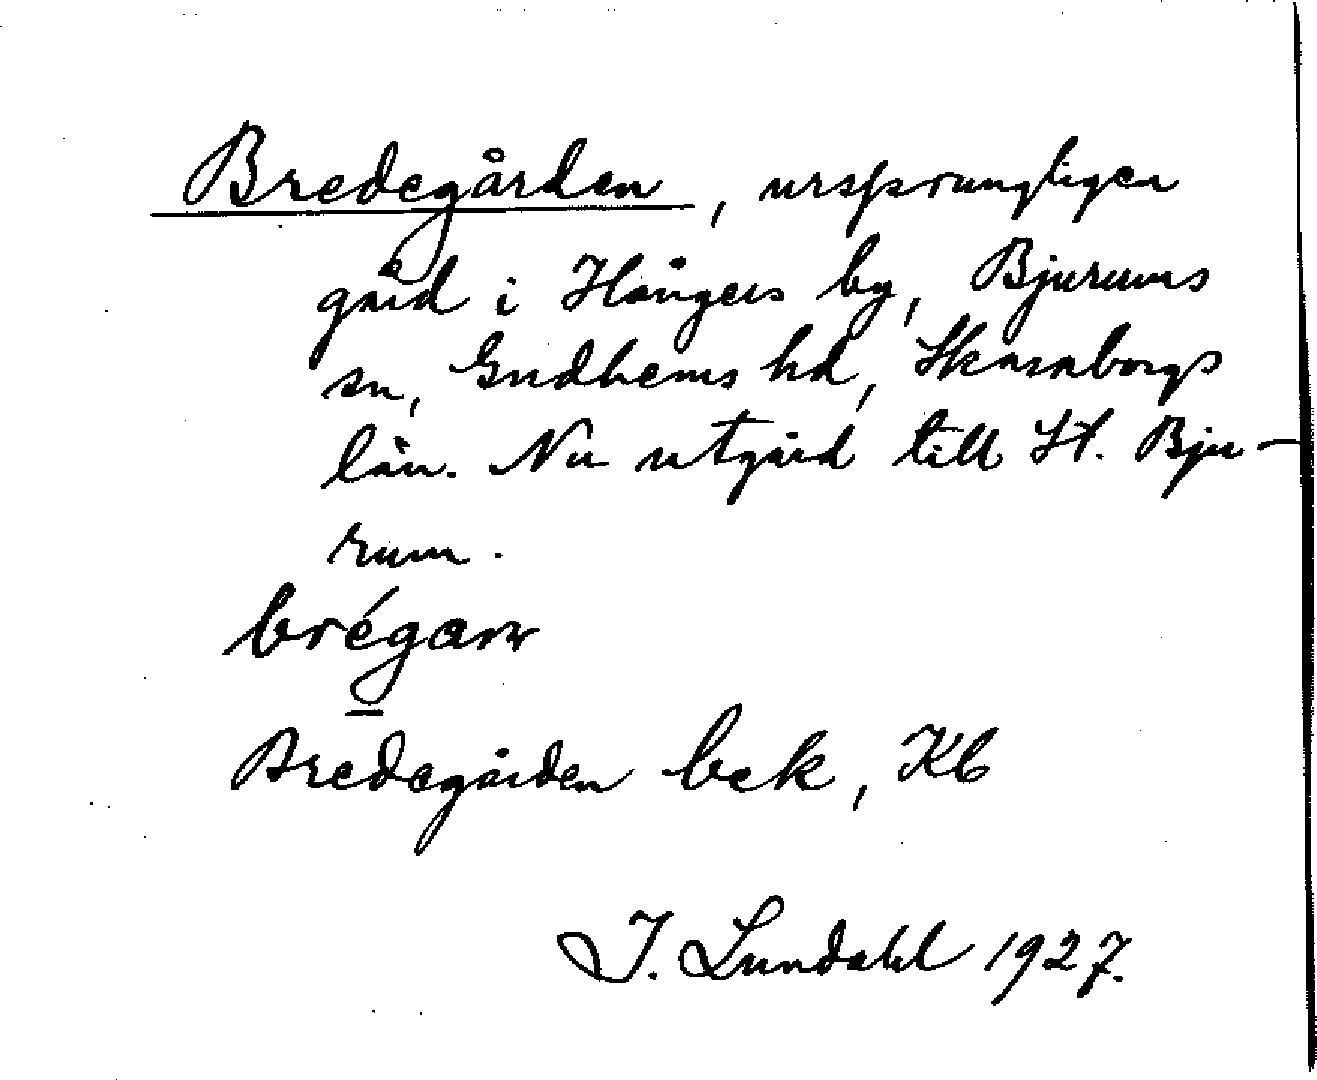 Bredegården, ursprungligen
gård i Hångers by, Bjurums
sn, Gudhems hd, Skaraborgs
län. Nu utgård till St. Bju-
rum.
brégarn
Bredegården bek, Kb
I. Lundahl 1927.